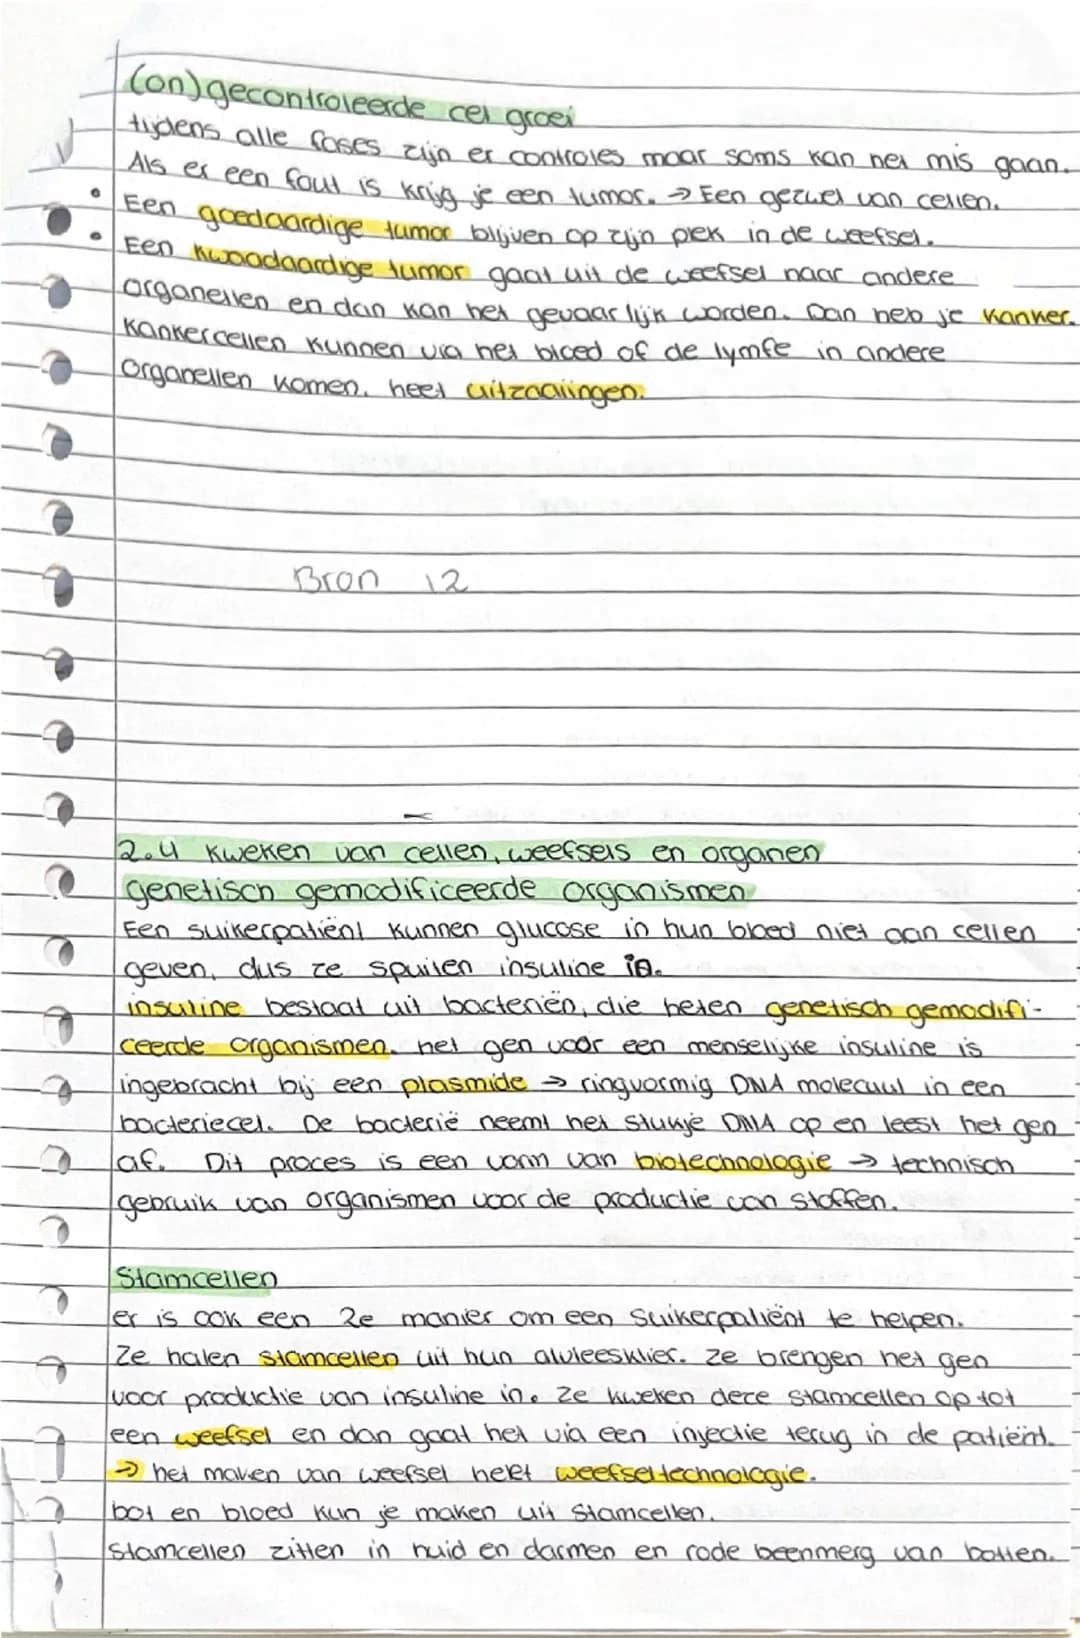 (on)gecontroleerde cel groei
tijdens alle fases zijn er controles maar soms kan het mis gaan.
Als er een fout is krijg je een tumor. → Een gezwel van cellen.
• Een goedaardige tumor blijven op zijn plek in de weefsel.
• Een kwaadaardige tumor gaat uit de weefsel naar andere
organellen en dan kan het gevaarlijk worden. Dan heb je kanker.
Kankercellen kunnen via het bloed of de lymfe in andere
organellen komen. heet uitzaaiingen.
Bron 12
2.4 kweken van cellen, weefsels en organen
genetisch gemodificeerde organismen
Een suikerpatiënt kunnen glucose in hun bloed niet aan cellen
geven, dus ze spuiten insuline in.
insuline bestaat uit bacteriën, die heten genetisch gemodifi-
ceerde organismen. het gen voor een menselijke insuline is
ingebracht bij een plasmide → ringvormig DNA molecuul in een
bacteriecel. De bacterië neemt het stukje DNA op en leest het gen
af. Dit proces is een vorm van biotechnologie → technisch
gebruik van organismen voor de productie van stoffen.
Stamcellen
er is ook een 2e manier om een suikerpatiënt te helpen.
Ze halen stamcellen uit hun alvleesklier. ze brengen het gen
voor productie van insuline in. Ze kweken deze stamcellen op tot
een weefsel en dan gaat het via een injectie terug in de patiënt.
→ het maken van weefsel heet weefseltechnologie.
bot en bloed kun je maken uit stamcellen.
stamcellen zitten in huid en darmen en rode beenmerg van botten.